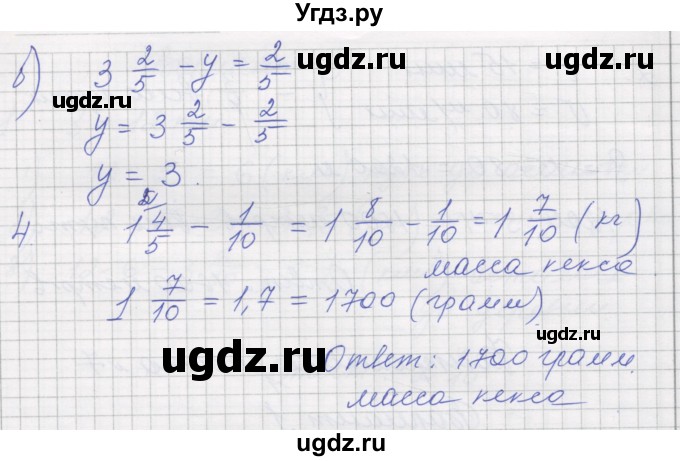 Угдз.ру
ugdz.ru ugdz.ru
в) 3 2/5 - y = 2/5
ugdz.ru ugdz.ru
y = 3 2/5 - 2/5
y = 3.
ugdz.ru ugdz.ru
4. 1 4/5 - 1/10 = 1 8/10 - 1/10 = 1 7/10 (кг)
масса кекса
ugdz.ru
1 7/10 = 1,7 = 1700 (грамм)
ugdz.ru ugdz.ru
Ответ: 1700 грамм.
масса кекса
ugdz.ru